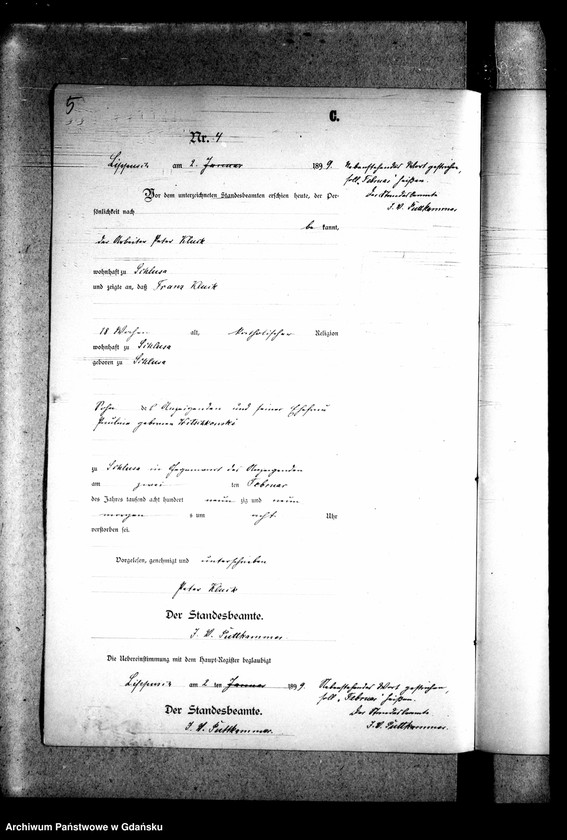 5
C.
Nr. 4
am 2. Januar 1899.
Nebenstehendes Wort gestrichen,
soll „Februar" heißen.
Der Standesbeamte
J. V. Puttkammer
Vor dem unterzeichneten Standesbeamten erschien heute, der Per-
sönlichkeit nach
be kannt,
der Arbeiter Peter Klinik
wohnhaft zu
und zeigte an, daß Franz Klinik
18 Wochen alt, katholischer Religion
wohnhaft zu
geboren zu
Sohn des Anzeigenden und seiner Ehefrau
geborenen
zu in Gegenwart des Anzeigenden
am zwei ten Februar
des Jahres tausend acht hundert neun zig und neun
morgen s um acht Uhr
verstorben sei.
Vorgelesen, genehmigt und unterschrieben
Peter Klinik
Der Standesbeamte.
J. V. Puttkammer
Die Uebereinstimmung mit dem Haupt-Register beglaubigt
am 2 ten Januar 1899.
Nebenstehendes Wort gestrichen,
soll „Februar" heißen.
Der Standesbeamte
Der Standesbeamte.
J. V. Puttkammer.
J. V. Puttkammer.
Archiwum Państwowe w Gdańsku